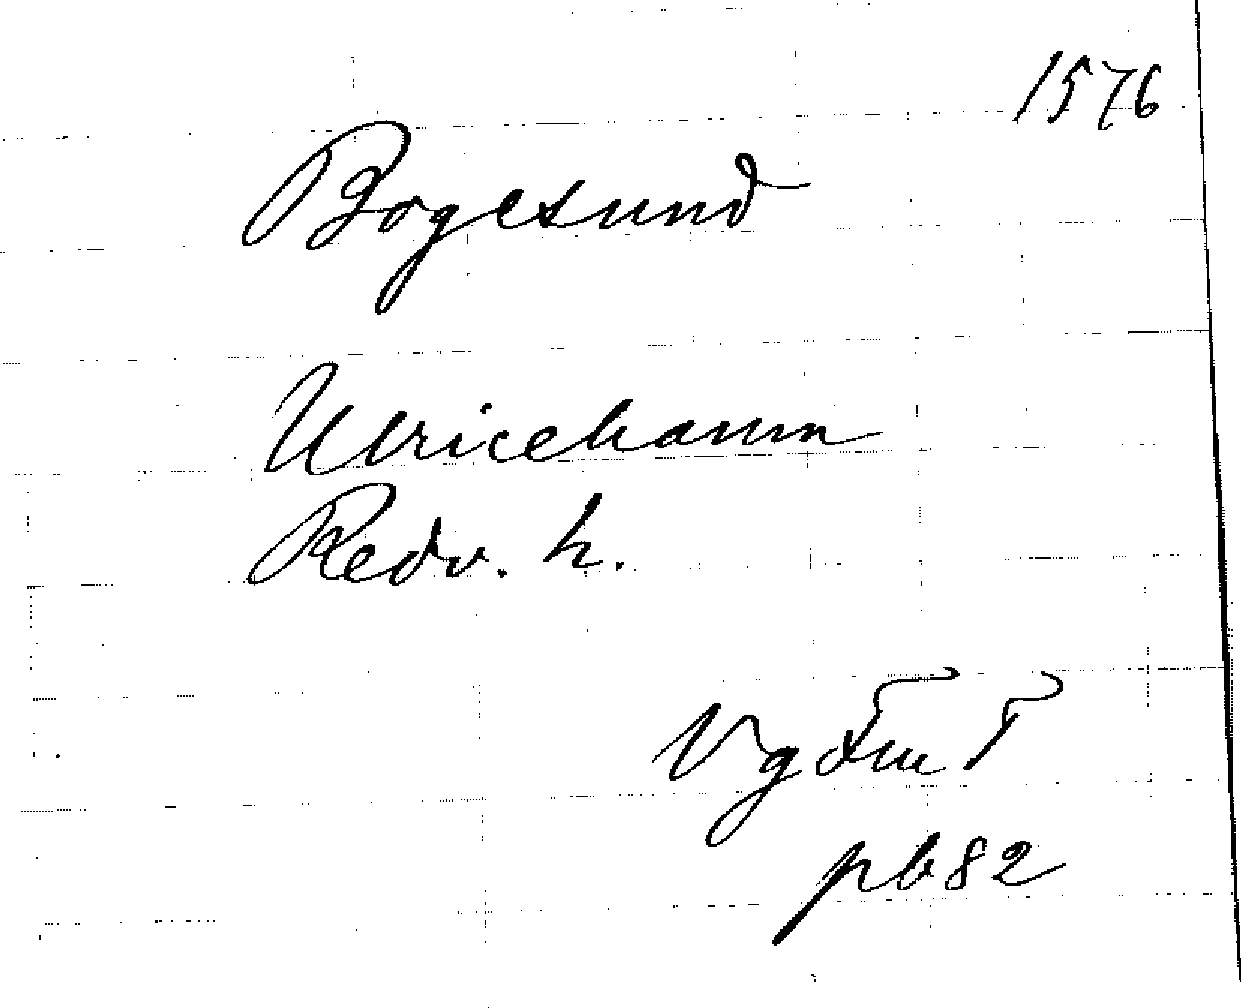 1576
Bogesund
Ulricehamn
Redv. h.
Vg
pb82